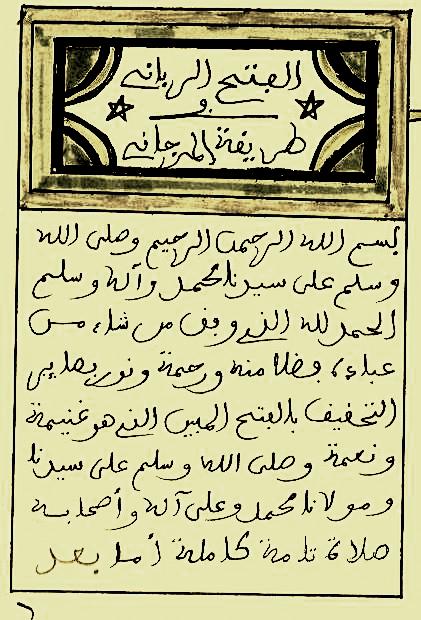 الفتح الرباني
في
طريقة المرجاني
بسم الله الرحمن الرحيم وصلى الله
وسلم على سيدنا محمد وآله وسلم
الحمد لله الذي وفق من شاء من
عباده فضلا منه ورحمة ونور
التحقيق بالفتح المبين الذي هو غنيمة
ونعمة وصلى الله وسلم على سيدنا
ومولانا محمد وعلى آله وأصحابه
صلاة تامة كاملة أما بعد